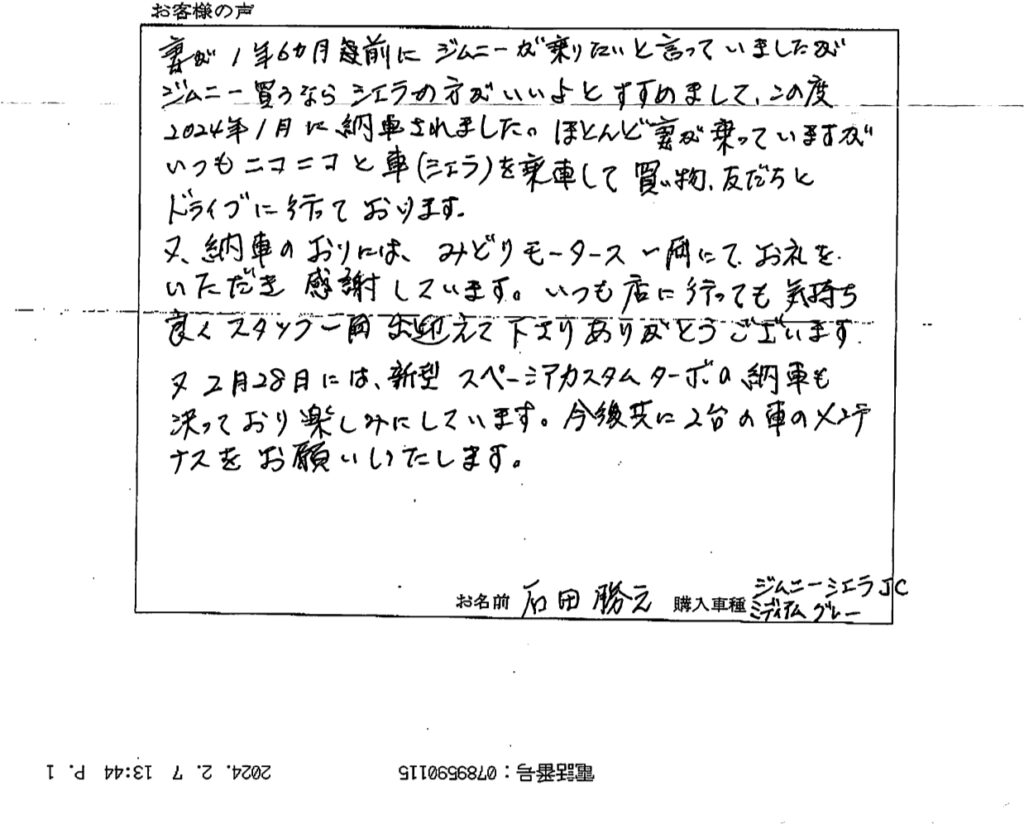 お客様の声
妻が1年6カ月程前にジムニーが乗りたいと言っていましたが
ジムニー買うならシエラの方がいいよとすすめまして、この度
2024年1月に納車されました。ほとんど妻が乗っていますが
いつもニコニコと車(シエラ)を乗車して買い物、友だちと
ドライブに行っております。
又、納車のおりには、みどりモータース一同にて、お礼を
いただき感謝しています。いつも店に行っても気持ち
良くスタッフ一同お迎えて下さりありがとうございます。
又2月28日には、新型スペーシアカスタムターボの納車も
決っており楽しみにしています。今後共に2台の車のメンテ
ナスをお願いいたします。
お名前 石田勝元 購入車種 ジムニーシエラJC
ミディアムグレー
電話番号:0789590115
2024. 2. 7 13:44 P. 1